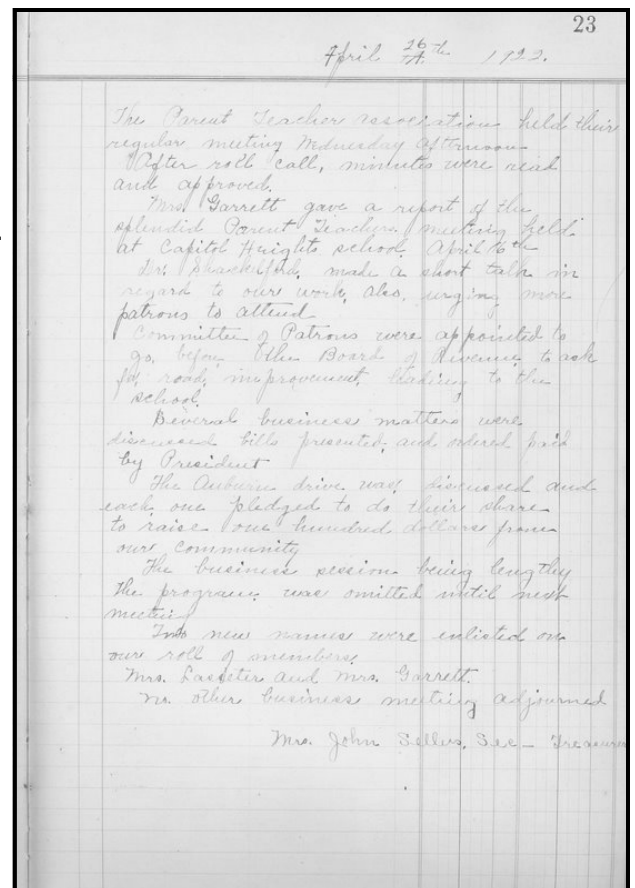 23
April 26th 1922.
The Parent Teacher association held their
regular meeting Wednesday afternoon
After roll call, minutes were read
and approved.
Mrs. Garrett gave a report of the
splendid Parent Teachers meeting held
at Capitol Heights school, April 16th
Dr. Shackelford, made a short talk in
regard to our work, also, urging more
patrons to attend
Committee of Patrons were appointed to
go, before the Board of Revenue, to ask
for road, improvement, leading to the
school.
Several business matters were
discussed bills presented, and ordered paid
by President
The Auburn drive was, discussed and
each one pledged to do their share
to raise one hundred dollars from
our community
The business session being lengthy
the program, was omitted until next
meeting
Two new names were enlisted on
our roll of members,
Mrs. Lasseter and Mrs. Garrett.
No. other business meeting adjourned
Mrs. John Sellers, Sec - Treasurer